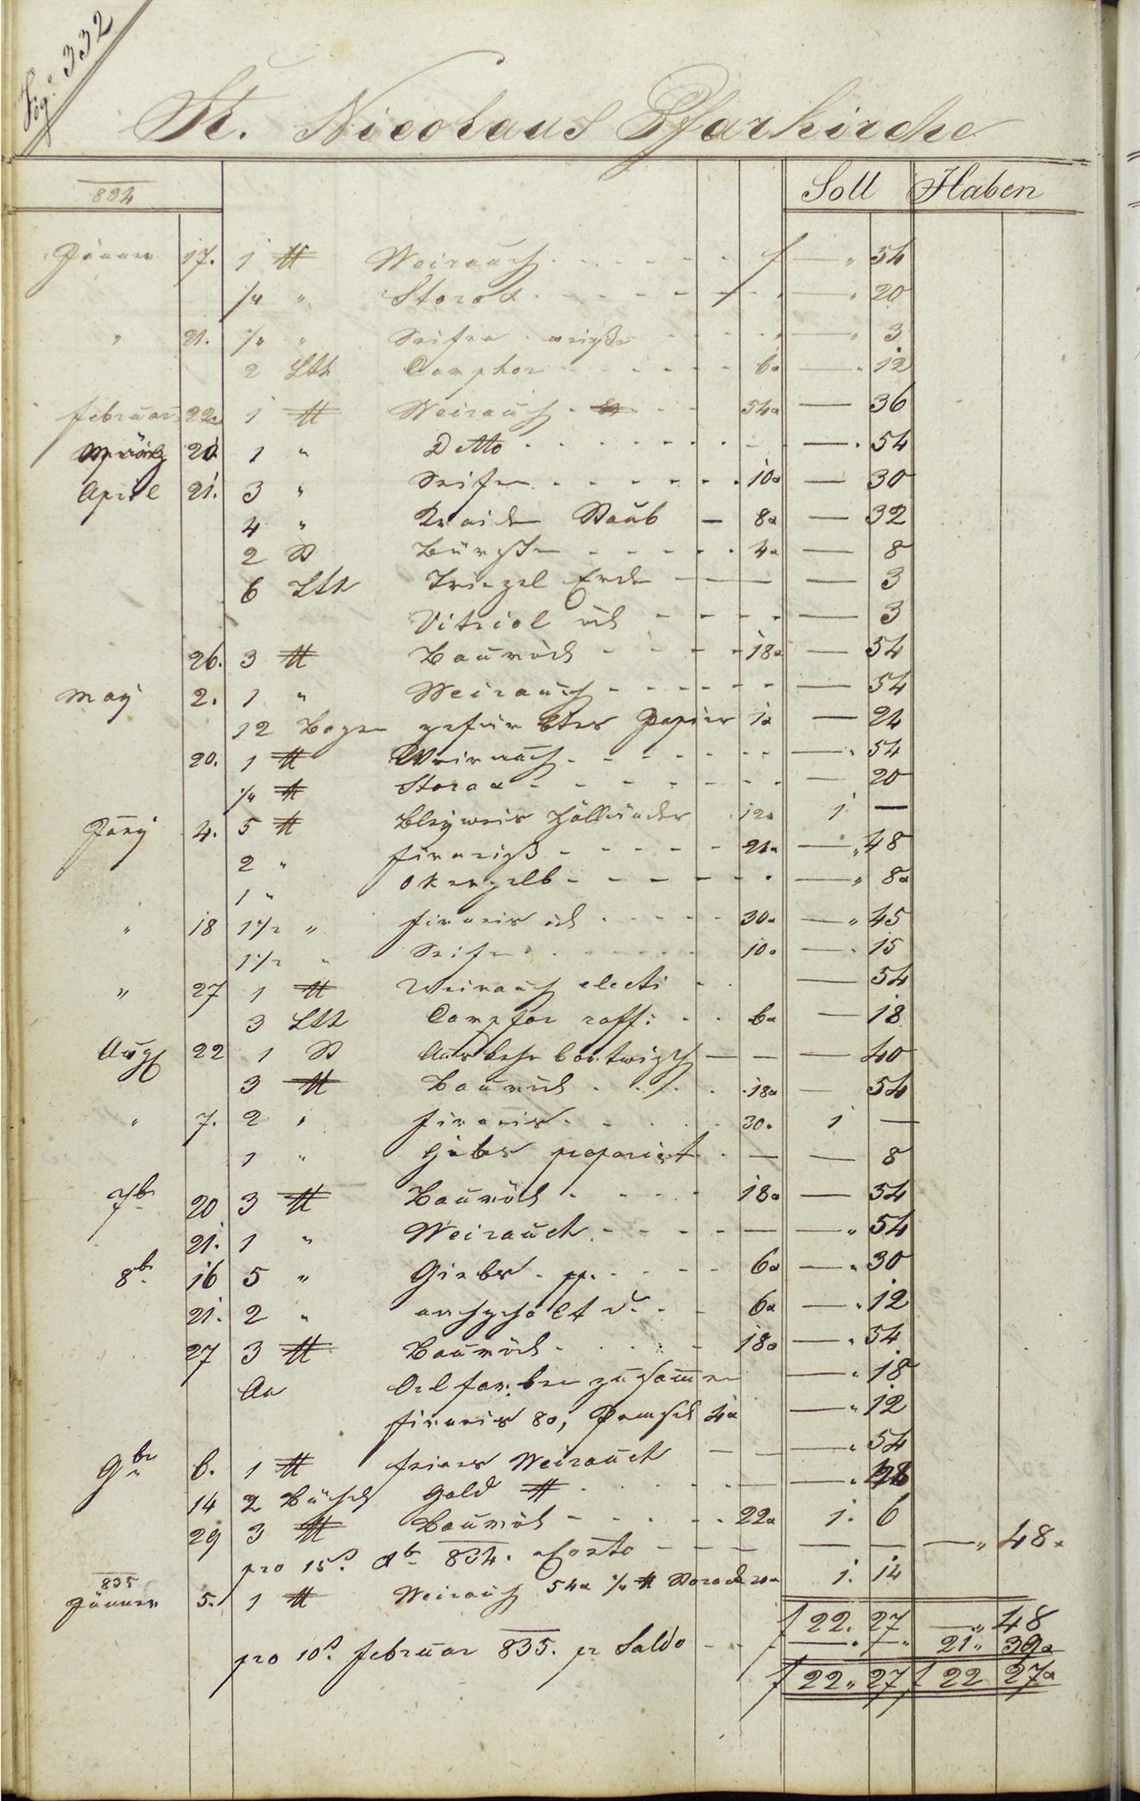 Fog: 332
St. Nicolaus Pfarkirche
834 Soll Haben
Jänner 17. 1 ℔ Weirauch f — " 54
1/4 " Storax — " 20
" 21. 1/4 " Seifen weiße — " 3
2 Lth Camphor 6x — . 12
Februar 22. 1 ℔ Weirauch 54x — 36
März 20. 1 " Detto — . 54
April 21. 3 " Seifen 10x — 30
4 " Kraiden Staub — 8x — 32
2 St Bürsten 4x — 8
6 Lth Triepel Erde — 3
Vitriol öch — 3
26. 3 ℔ Baumöch 18x — 54
May 2. 1 " Weirauch — 54
12 Bogen gefärbtes Papier 1x — 24
20. 1 ℔ Weirauch — . 54
1/4 ℔ Storax — 20
Juny 4. 5 ℔ Bleyweis Holländer 12x 1 —
2 " Firneiß 24x — " 48
1 " Okergelb — " 8x
" 18 1 1/2 " Firneis öch 30x — " 45
1 1/2 " Seifen 10x — . 15
" 27 1 ℔ Weirauch electi — 54
3 Lth Campfor raff: 6x — 18
Aug 22 1 St — 40
3 ℔ Baumöch 18x — 54
" 7. 2 " Firneis 30x 1 —
1 " Gibs — 8
7br 20 3 ℔ Baumöch 18x — 54
21. 1 " Weirauch — " 54
8br 16 5 " Giebs 6x — . 30
21. 2 " 6x — . 12
27 3 ℔ Baumöch 18x — . 54
An Oelfarben zusammen — . 18
Firneis 8x, Pemsel 4x — " 12
9br 6. 1 ℔ feines Weirauch — . 54
14 2 Büschl Gold — . 28
29 3 ℔ Baumöch 22x 1. 6
pro 15. 834. Conto — — — " 48x
835
Jänner 5. 1 ℔ Weirauch 54x 1/4 ℔ Storax 20x 1. 14
f 22. 27 — " 48
pro 10. Februar 835. pr Saldo — . — " 21 " 39x
f 22 " 27 f 22 27x